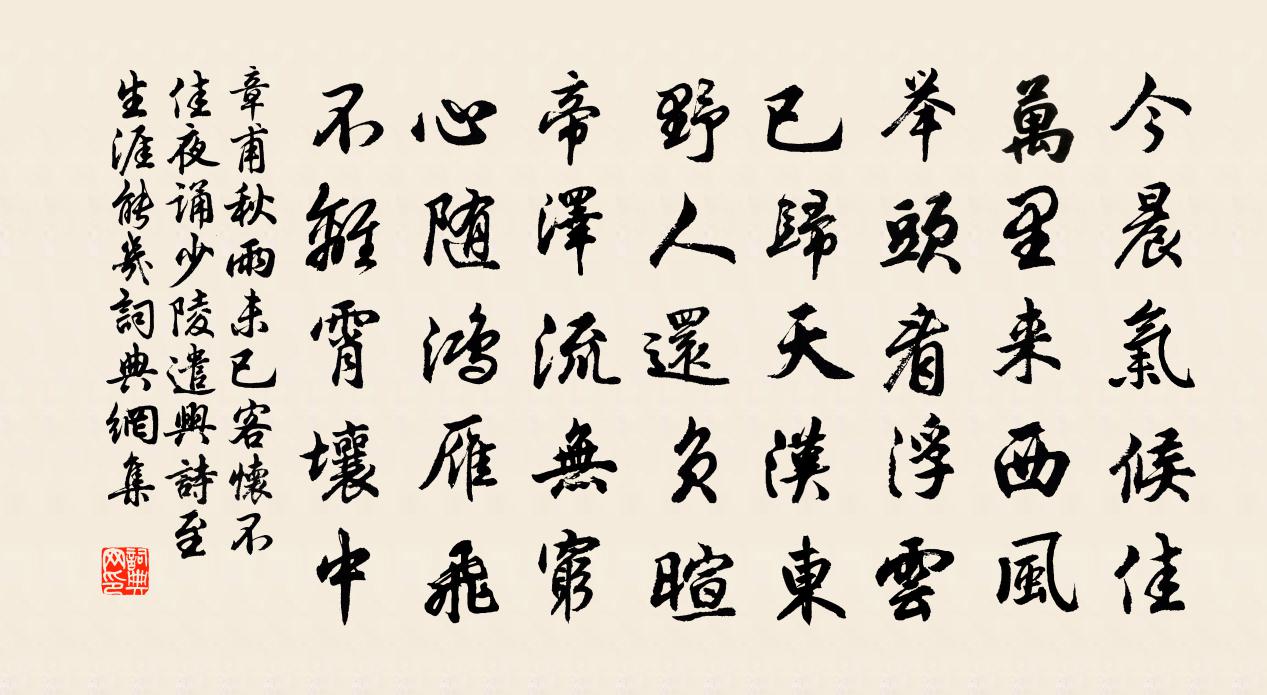 今晨氣候佳
萬里来西風
举頭看浮雲
已歸天漢東
野人還負暄
帝澤流無窮
心随鴻雁飛
不離霄壤中
章甫秋雨未已客懷不
佳夜誦少陵遣興詩至
生涯能幾詞典網集
詞典
网印